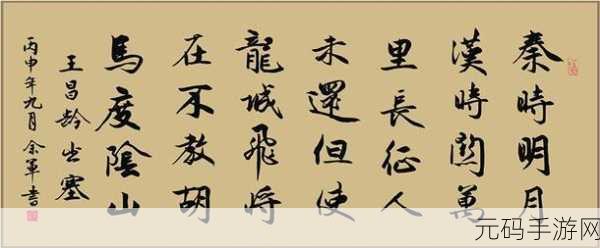 秦時明月
漢時關萬
里長征人
未還但使
龍城飛將
在不教胡
馬度陰山
王昌龄出塞
丙申年九月余軍書
元码手游网